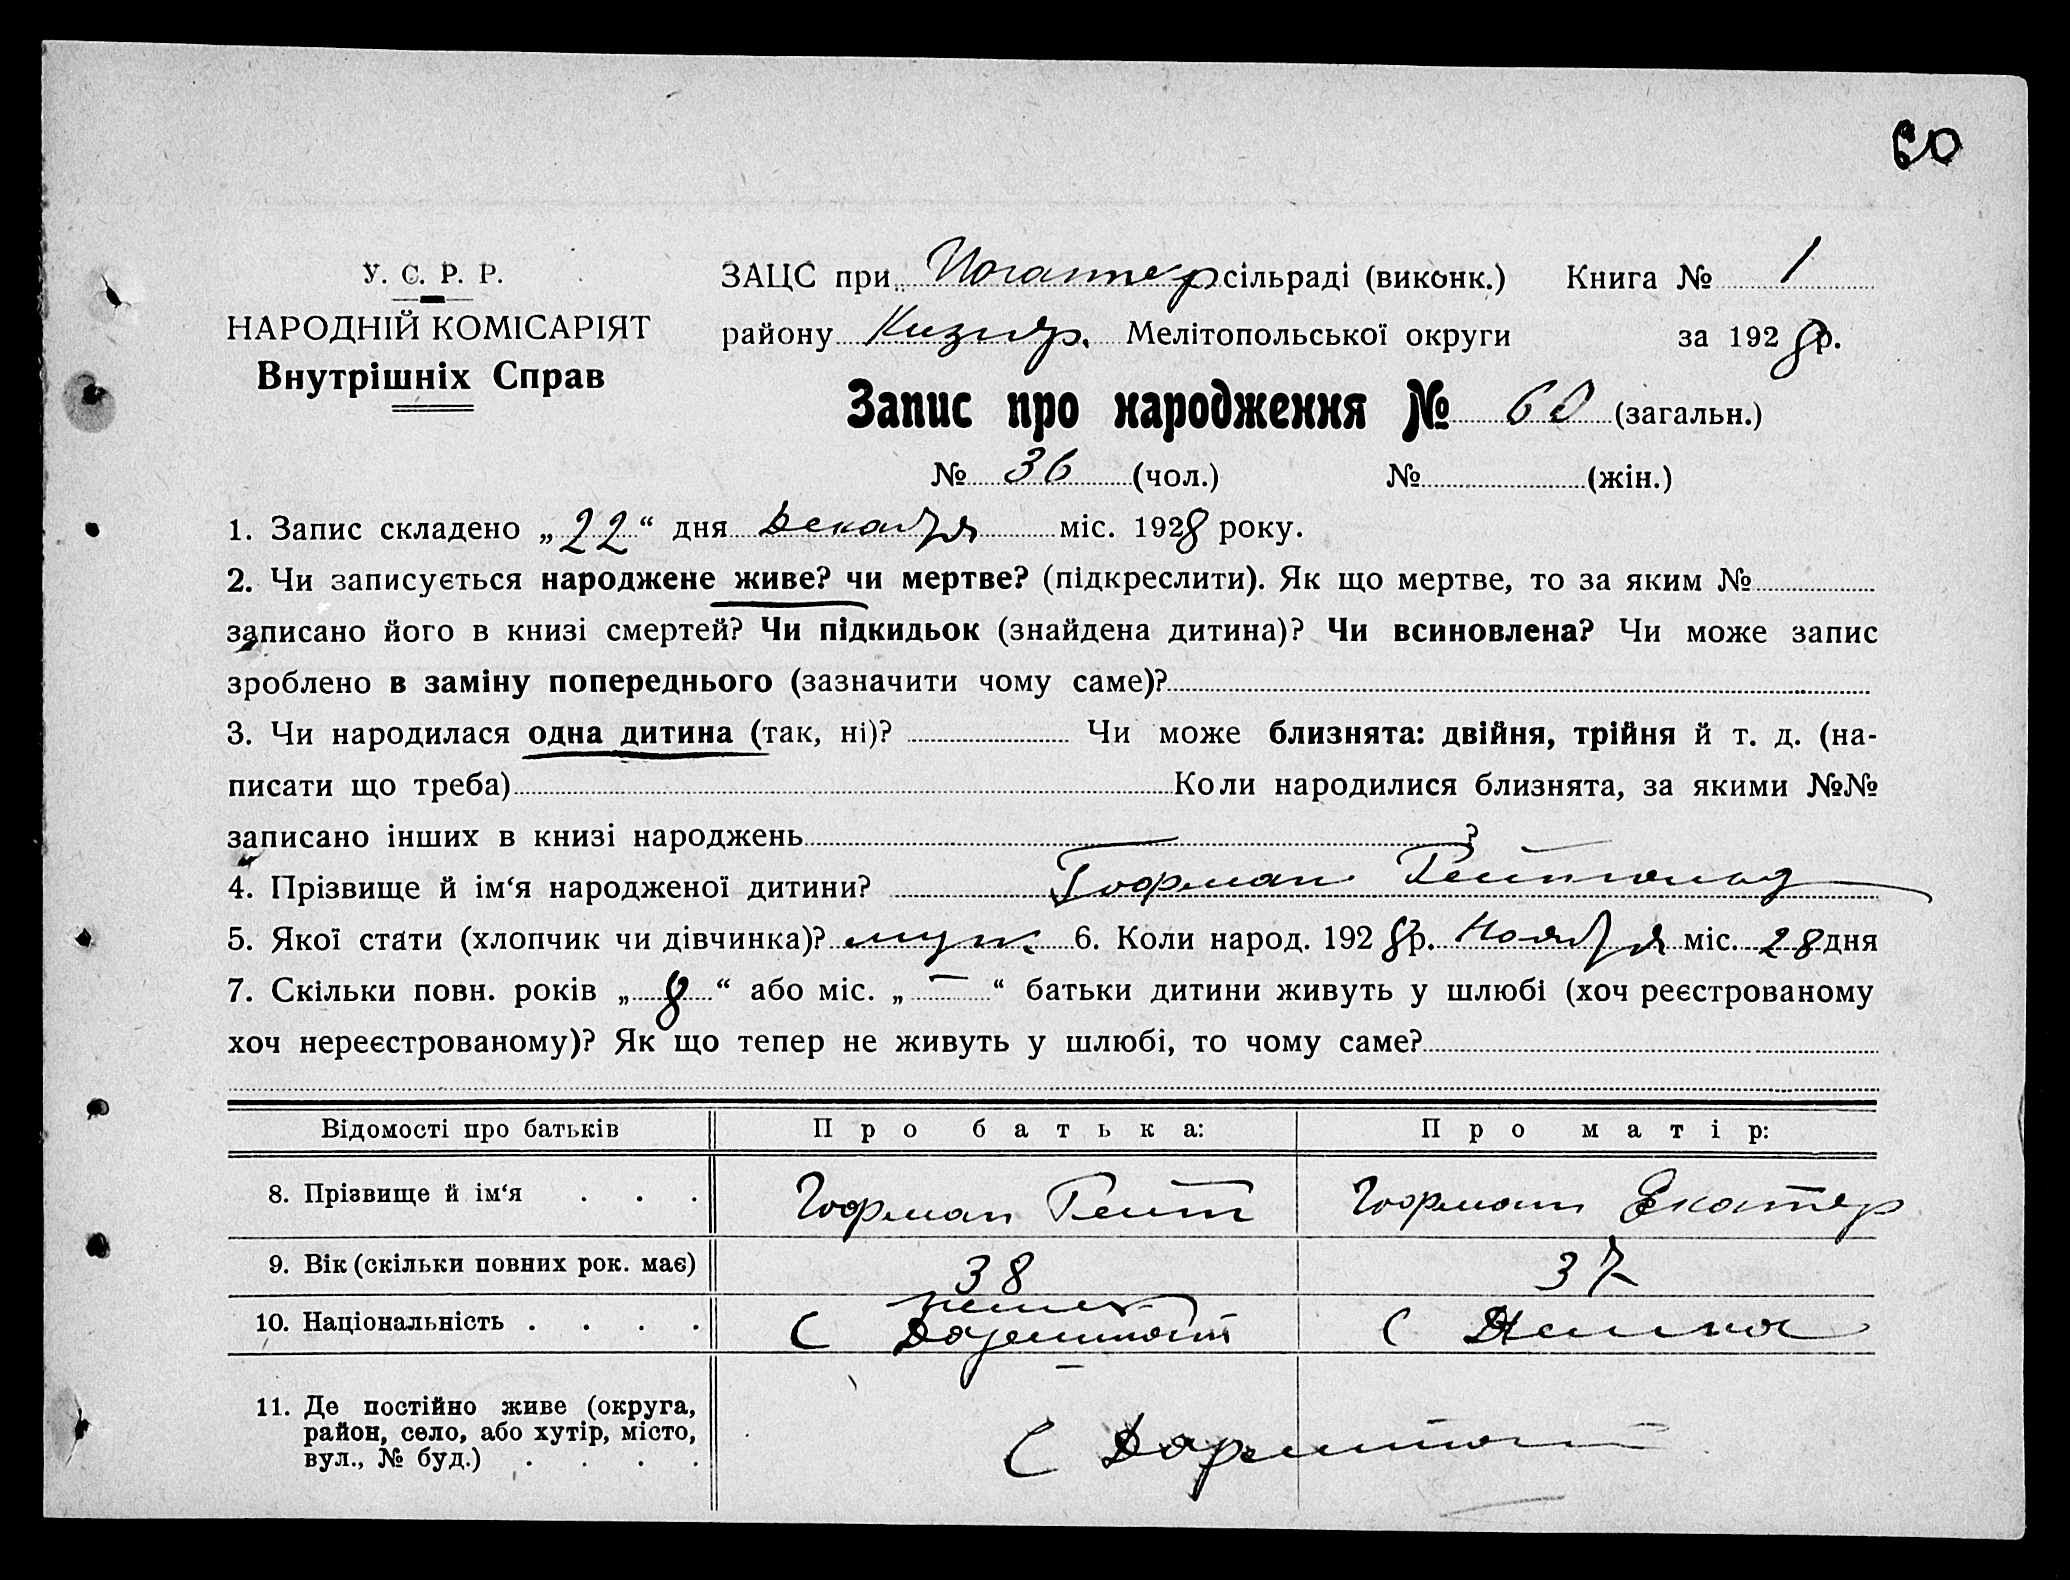 60
У. С. Р. Р.
НАРОДНІЙ КОМІСАРІЯТ
Внутрішніх Справ
ЗАЦС при сільраді (виконк.) Книга № 1
району Кизияр. Мелітопольської округи за 1928 р.
Запис про народження № 60 (загальн.)
№ 36 (чол.) № (жін.)
1. Запис складено „22“ дня Декабря міс. 1928 року.
2. Чи записується народжене живе? чи мертве? (підкреслити). Як що мертве, то за яким №
записано його в книзі смертей? Чи підкидьок (знайдена дитина)? Чи всиновлена? Чи може запис
зроблено в заміну попереднього (зазначити чому саме)?
3. Чи народилася одна дитина (так, ні)? Чи може близнята: двійня, трійня й т. д. (на-
писати що треба) Коли народилися близнята, за якими №№
записано інших в книзі народжень ?
4. Прізвище й ім‘я народженої дитини? Гофман
5. Якої стати (хлопчик чи дівчинка)? муж. 6. Коли народ. 1928 р. Ноября міс. 28 дня
7. Скільки повн. років „8“ або міс. „—“ батьки дитини живуть у шлюбі (хоч реєстрованому
хоч нереєстрованому)? Як що тепер не живуть у шлюбі, то чому саме?
Відомості про батьків Про батька: Про матір:
8. Прізвище й ім‘я . . . Гофман Гофман Екатер
9. Вік (скільки повних рок. має) 38 37
10. Національність . . . . немец Немка
11. Де постійно живе (округа,
район, село, або хутір, місто,
вул., № буд.) . . . . С